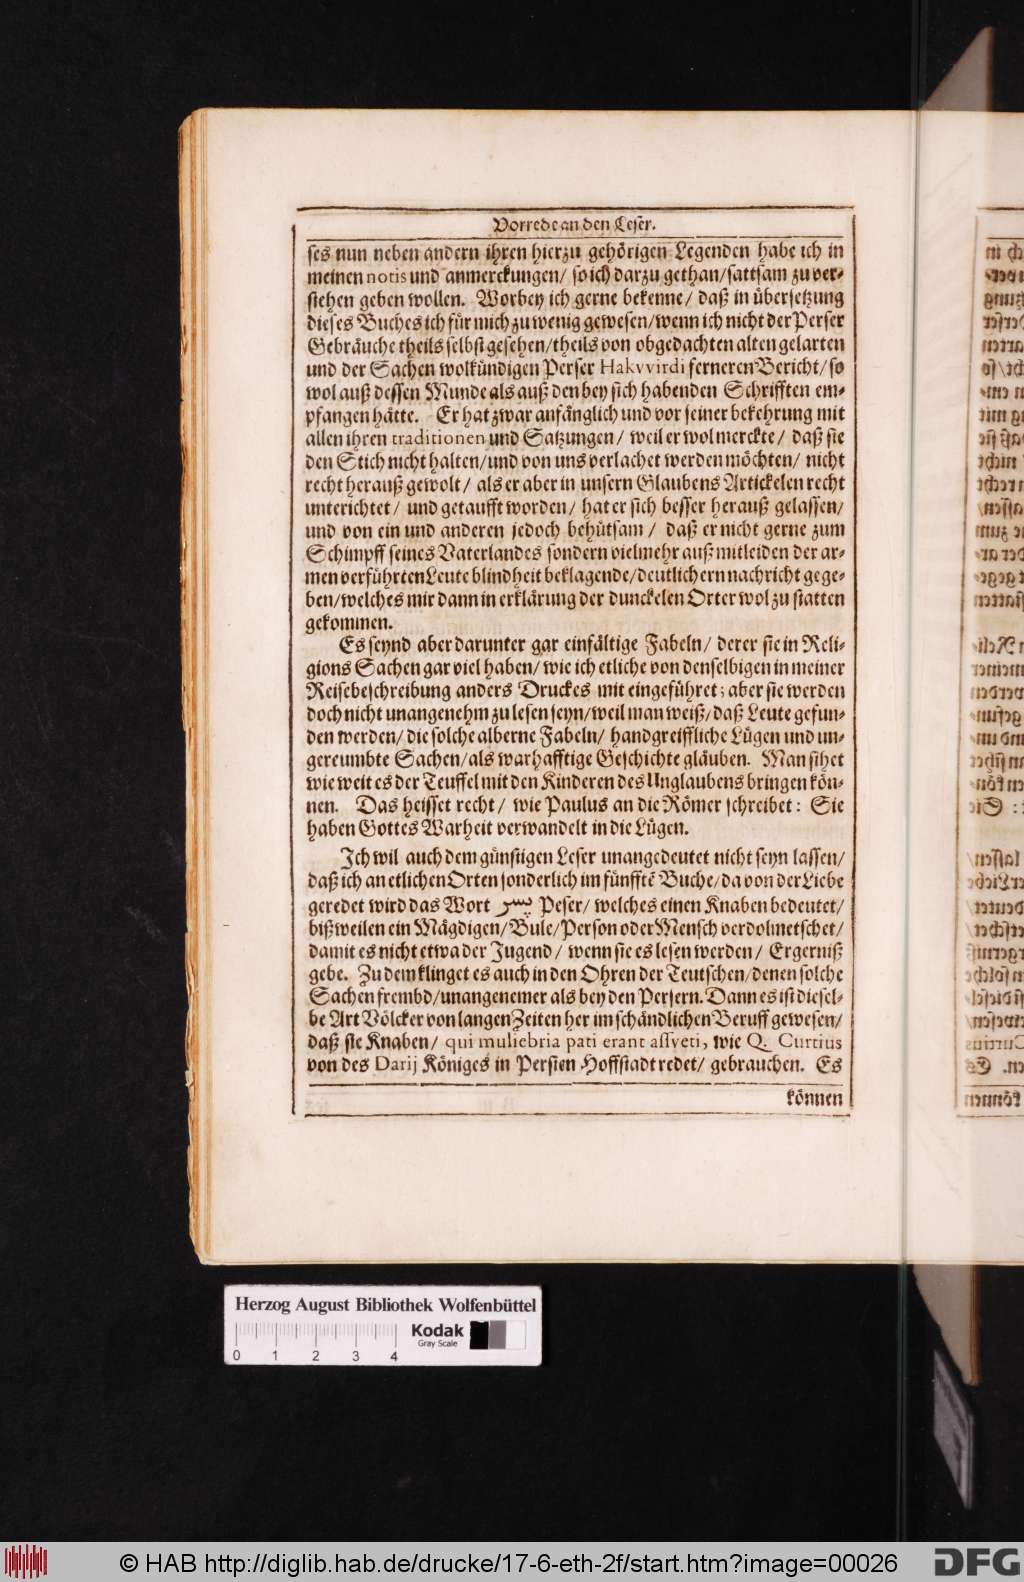 Vorrede an den Leser.
ses nun neben andern ihren hierzu gehörigen Legenden habe ich in
meinen notis und anmerckungen/ so ich darzu gethan/ sattsam zu ver-
stehen geben wollen. Worbey ich gerne bekenne/ daß in übersetzung
dieses Buches ich für mich zu wenig gewesen/ wenn ich nicht der Perser
Gebräuche theils selbst gesehen/ theils von obgedachten alten gelarten
und der Sachen wolkündigen Perser Hakvvirdi ferneren Bericht/ so
wol auß dessen Munde als auß den bey sich habenden Schrifften em-
pfangen hätte. Er hat zwar anfänglich und vor seiner bekehrung mit
allen ihren traditionen und Satzungen/ weil er wol merckte/ daß sie
den Stich nicht halten/ und von uns verlachet werden möchten/ nicht
recht herauß gewolt/ als er aber in unsern Glaubens Artickelen recht
unterichtet/ und getaufft worden/ hat er sich besser herauß gelassen/
und von ein und anderen jedoch behütsam/ daß er nicht gerne zum
Schimpff seines Vaterlandes sondern vielmehr auß mitleiden der ar-
men verführten Leute blindheit beklagende/ deutlichern nachricht gege-
ben/ welches mir dann in erklärung der dunckelen Orter wol zu statten
gekommen.
Es seynd aber darunter gar einfältige Fabeln/ derer sie in Reli-
gions Sachen gar viel haben/ wie ich etliche von denselbigen in meiner
Reisebeschreibung anders Druckes mit eingeführet; aber sie werden
doch nicht unangenehm zu lesen seyn/ weil man weiß/ daß Leute gefun-
den werden/ die solche alberne Fabeln/ handgreiffliche Lügen und un-
gereumbte Sachen/ als warhafftige Geschichte gläuben. Man sihet
wie weit es der Teuffel mit den Kinderen des Unglaubens bringen kön-
nen. Das heisset recht/ wie Paulus an die Römer schreibet: Sie
haben Gottes Warheit verwandelt in die Lügen.
Ich wil auch dem günstigen Leser unangedeutet nicht seyn lassen/
daß ich an etlichen Orten sonderlich im fünfftē Buche/ da von der Liebe
geredet wird das Wort پسر Peser/ welches einen Knaben bedeutet/
bißweilen ein Mägdigen/ Bule/ Person oder Mensch verdolmetschet/
damit es nicht etwa der Jugend/ wenn sie es lesen werden/ Ergerniß
gebe. Zu dem klinget es auch in den Ohren der Teutschen/ denen solche
Sachen frembd/ unangenemer als bey den Persern. Dann es ist diesel-
be Art Völcker von langen Zeiten her im schändlichen Beruff gewesen/
daß sie Knaben/ qui muliebria pati erant assveti, wie Q. Curtius
von des Darij Königes in Persien Hoffstadt redet/ gebrauchen. Es
können
Herzog August Bibliothek Wolfenbüttel
Kodak
Gray Scale
0 1 2 3 4
© HAB http://diglib.hab.de/drucke/17-6-eth-2f/start.htm?image=00026
DFG